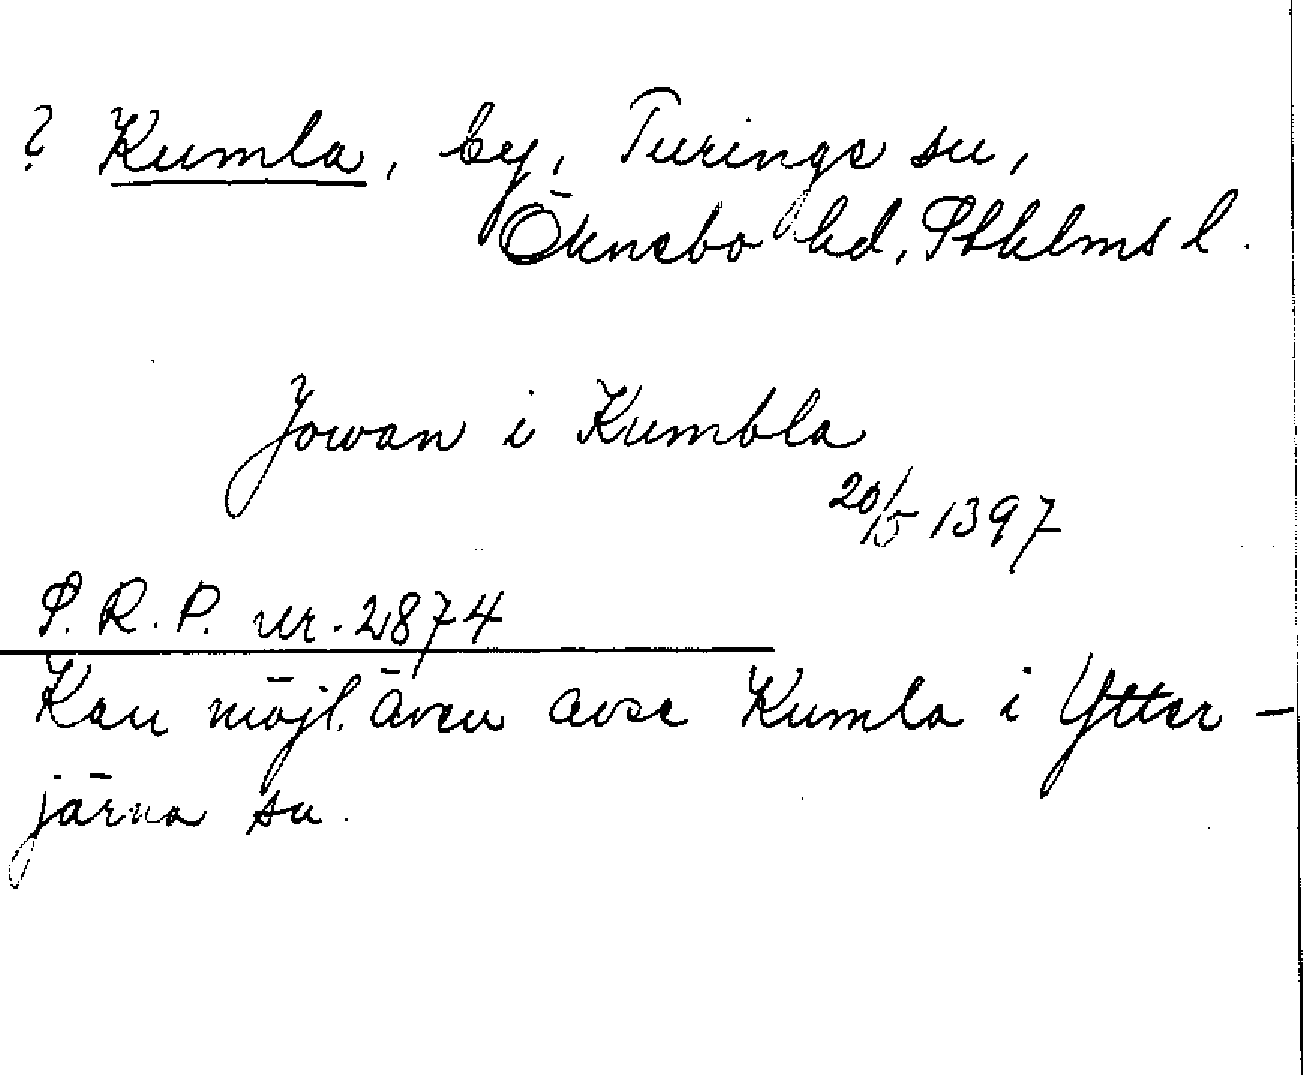 ? Kumla, by, Turinge sn,
Öknebo hd, Sthlms l.
Jowan i Kumbla
20/5 1397
S. R. P. nr. 2874
Kan möjl. även avse Kumla i Ytter-
järna sn.